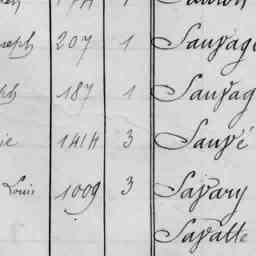 seph 207 1 Sauvage
ph 187 1 Sauvag
ie 1414 3 Sauvé
Louis 1009 3 Savary
Savatte